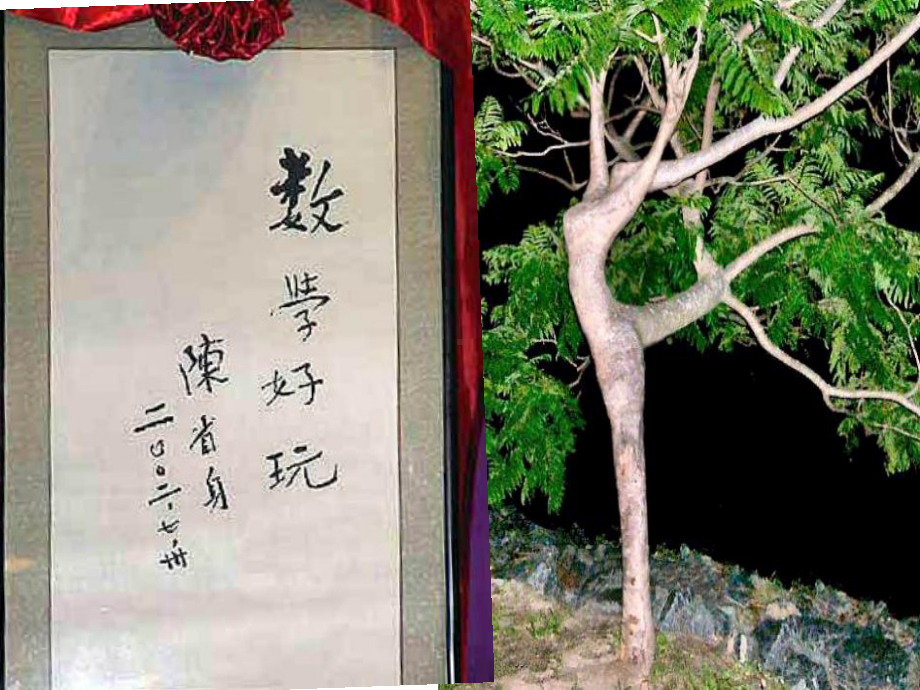 数学好玩
陳省身
二〇〇二·七·卅